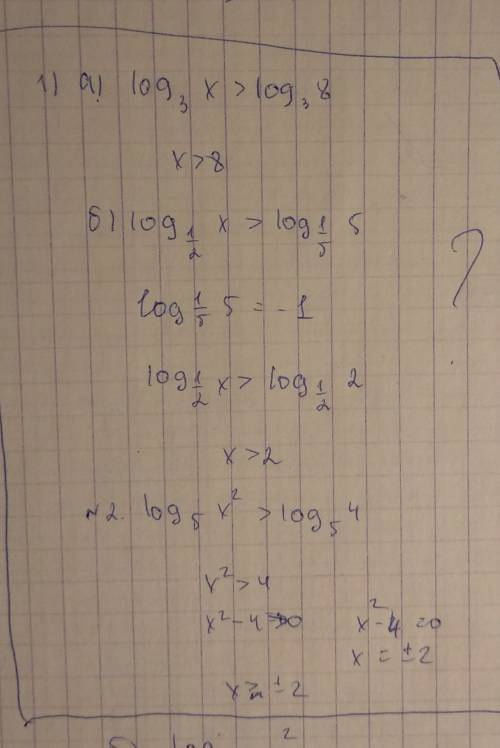 1) а) log₃ x > log₃ 8
x > 8
б) log_{1/2} x > log_{1/5} 5
log_{1/5} 5 = -1
log_{1/2} x > log_{1/2} 2
x > 2
№2. log₅ x² > log₅ 4
x² > 4
x² - 4 > 0 x² - 4 = 0
x = ±2
x > ±2
?